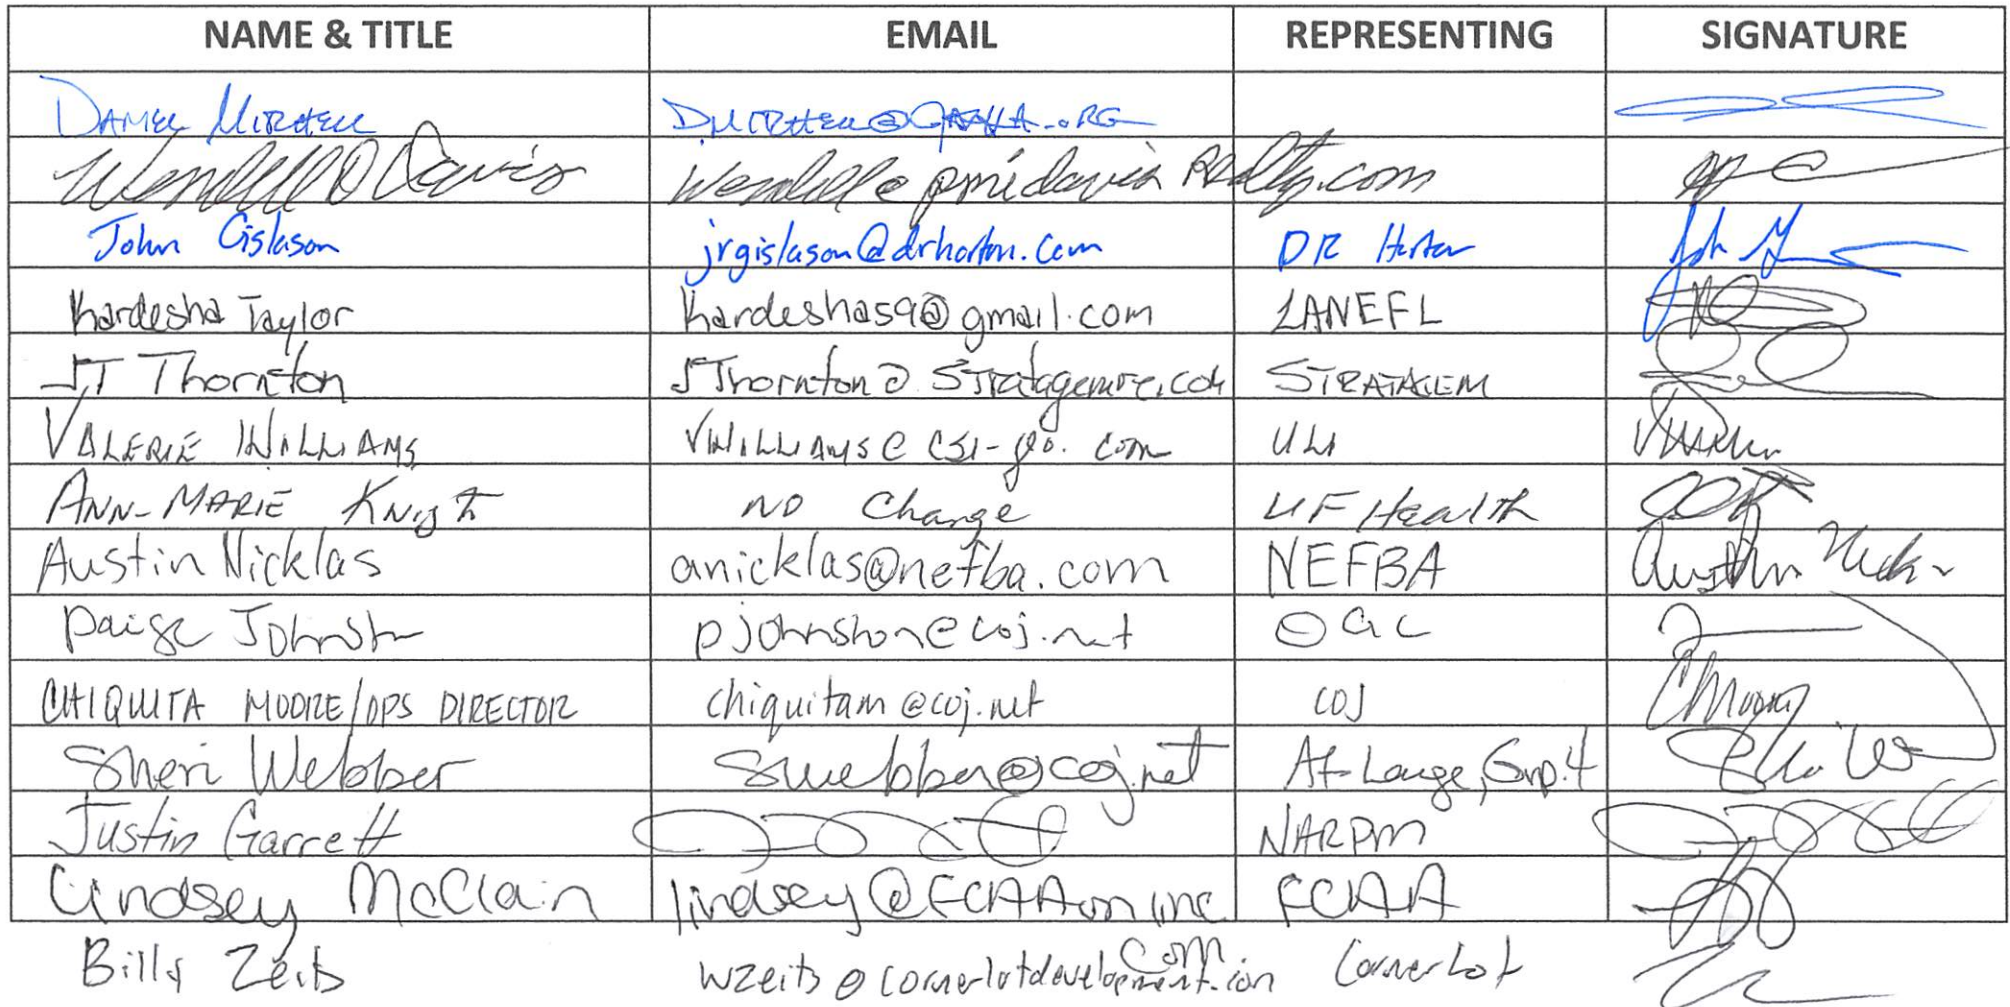 NAME & TITLE EMAIL REPRESENTING SIGNATURE
Wendell D Davis wendell@pmidavisRealty.com
John Gislason jrgislason@drhorton.com DR Horton
Kardesha Taylor kardesha59@gmail.com LANEFL
JT Thornton JThornton@ STRATAGEM
VALERIE WILLIAMS VWILLIAMS@CSI-geo.com ULI
ANN-MARIE Knight NO Change UF Health
Austin Nicklas anicklas@nefba.com NEFBA Austin
Paige Johnston pjohnston@coj.net OGC
CHIQUITA MOORE/OPS DIRECTOR chiquitam@coj.net COJ CMoore
Sheri Webber swebber@coj.net At-Large, Grp.4
Justin Garrett NARPM
Lindsey McClain lindsey@FCAAonline FCAA
com
Billy Zeits wzeits@cornerlotdevelopment.com CornerLot